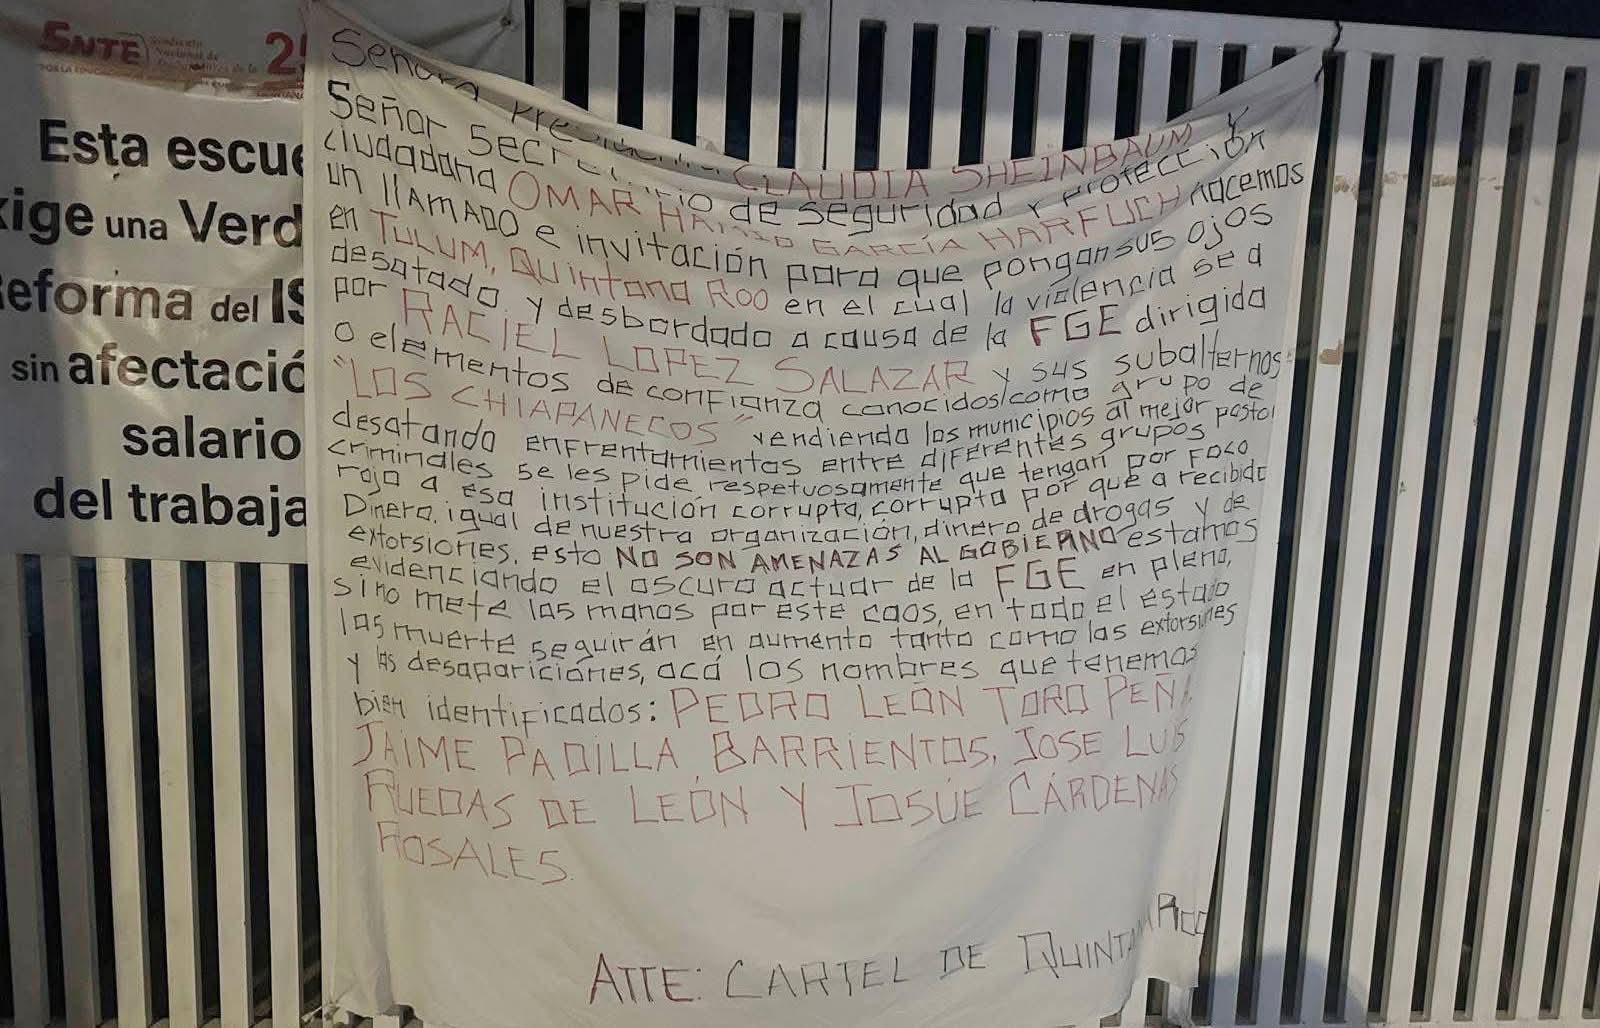 SNTE
Sindicato
Nacional de
de la
POR LA EDUCACIÓN
Esta escue
xige una Verd
Reforma del IS
sin afectació
salario
del trabaja
Señora Presidenta CLAUDIA SHEINBAUM Y
Señor Secretario de seguridad y protección
ciudadana OMAR HAMID GARCÍA HARFUCH hacemos
un llamado e invitación para que pongan sus ojos
en TULUM, Quintana Roo en el cual la violencia se a
desatado y desbordado a causa de la FGE dirigida
por RACIEL LOPEZ SALAZAR y sus subalternos
o elementos de confianza conocidos como grupo de
"LOS CHIAPANECOS" vendiendo los municipios al mejor postor
desatando enfrentamientos entre diferentes grupos
criminales se les pide respetuosamente que tengan por foco
rojo a esa institución corrupta, corrupta por que a recibido
Dinero, igual de nuestra organización, dinero de drogas y de
extorsiones, esto NO SON AMENAZAS AL GOBIERNO estamos
evidenciando el oscuro actuar de la FGE en pleno,
si no mete las manos por este caos, en todo el estado
las muerte seguirán en aumento tanto como las extorsiones
y las desapariciónes, acá los nombres que tenemos
bien identificados: PEDRO LEÓN TORO PEÑA,
JAIME PADILLA BARRIENTOS, JOSE LUIS
RUEDAS DE LEÓN Y JOSÚE CÁRDENAS
ROSALES.
ATTE: CARTEL DE QUINTANA ROO